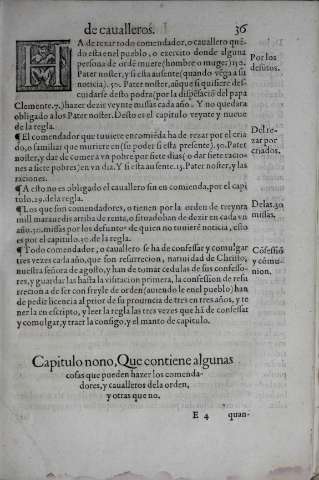 de caualleros. 36
HA de rezar todo comendador, o cauallero que-
do esta en el pueblo, o exercito donde alguna
persona de ordẽ muere (hombre o muger) 150.
Pater noster, y si esta ausente (quando vẽga a su
noticia). 50. Pater noster, aũque si quisiere des-
cuidarse desto podra (por la dispẽsació del papa
Clemente. 7.) hazer dezir veynte missas cada año. Y no quedara
obligado a los Pater noster. Desto es el capitulo veynte y nueue
de la regla.
Por los
defũtos.
¶ El comendador que tuuiere encomiẽda ha de rezar por el cria
do, o familiar que muriere en (su poder si esta presente). 50. Pater
noster, y dar de comer a vn pobre por siete dias (o dar siete racio-
nes a siete pobres) en vn dia. Y si esta ausente. 15. Pater noster, y las
raciones.
Del re-
zar por
criados.
¶ A esto no es obligado el cauallero sin encomienda, por el capi
tulo. 29. de la regla.
¶ Los que son comendadores, o tienen por la orden de treynta
mill marauedis arriba de renta, o situado han de dezir en cada vn
año. 30. missas por los defuntos de quien no tuuierẽ noticia, esto
es por el capitulo. 30. de la regla.
Delas. 30
missas.
¶ Todo comendador, o cauallero se ha de confessar y comulgar
tres vezes cada año, que son resurrecion, natiuidad de Christo,
nuestra señora de agosto, y han de tomar cedulas de sus confesso-
res, y guardarlas hasta la visitacion primera, la confession de resu
rrecion a de ser con freyle de orden (auiendole en el pueblo) han
de pedir licencia al prior de su prouincia de tres en tres años, y te
nerla en escripto, y leer la regla las tres vezes que hã de confessar
y comulgar, y traer la consigo, y el manto de capitulo.
Cõfessiõ
y comu-
nion.
Capitulo nono, Que contiene algunas
cosas que pueden hazer los comenda-
dores, y caualleros de la orden,
y otras que no.
E 4 quan-